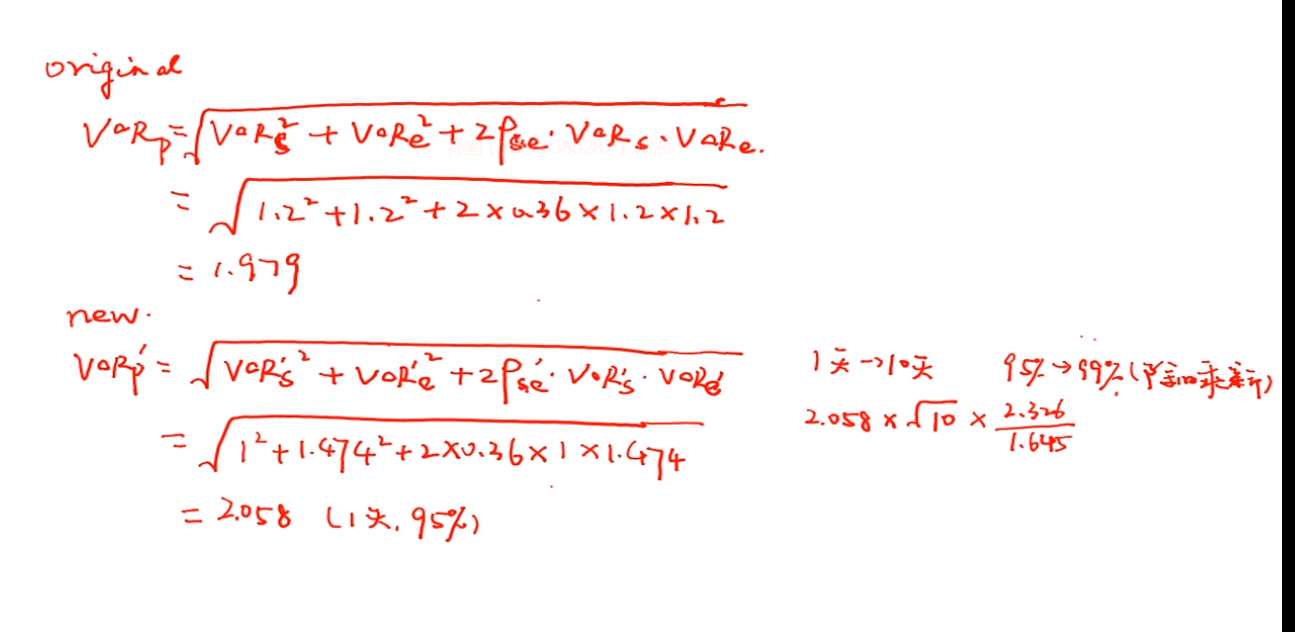 original
VaRp = √(VaRs² + VaRe² + 2ρse · VaRs · VaRe.
= √(1.2² + 1.2² + 2 × 0.36 × 1.2 × 1.2
= 1.979
new.
VaRp' = √(VaRs'² + VaRe'² + 2ρse' · VaRs' · VaRe'
= √(1² + 1.474² + 2 × 0.36 × 1 × 1.474
= 2.058 (1天, 95%)
1天→10天 95%→99% (
2.058 × √10 × 2.326/1.645